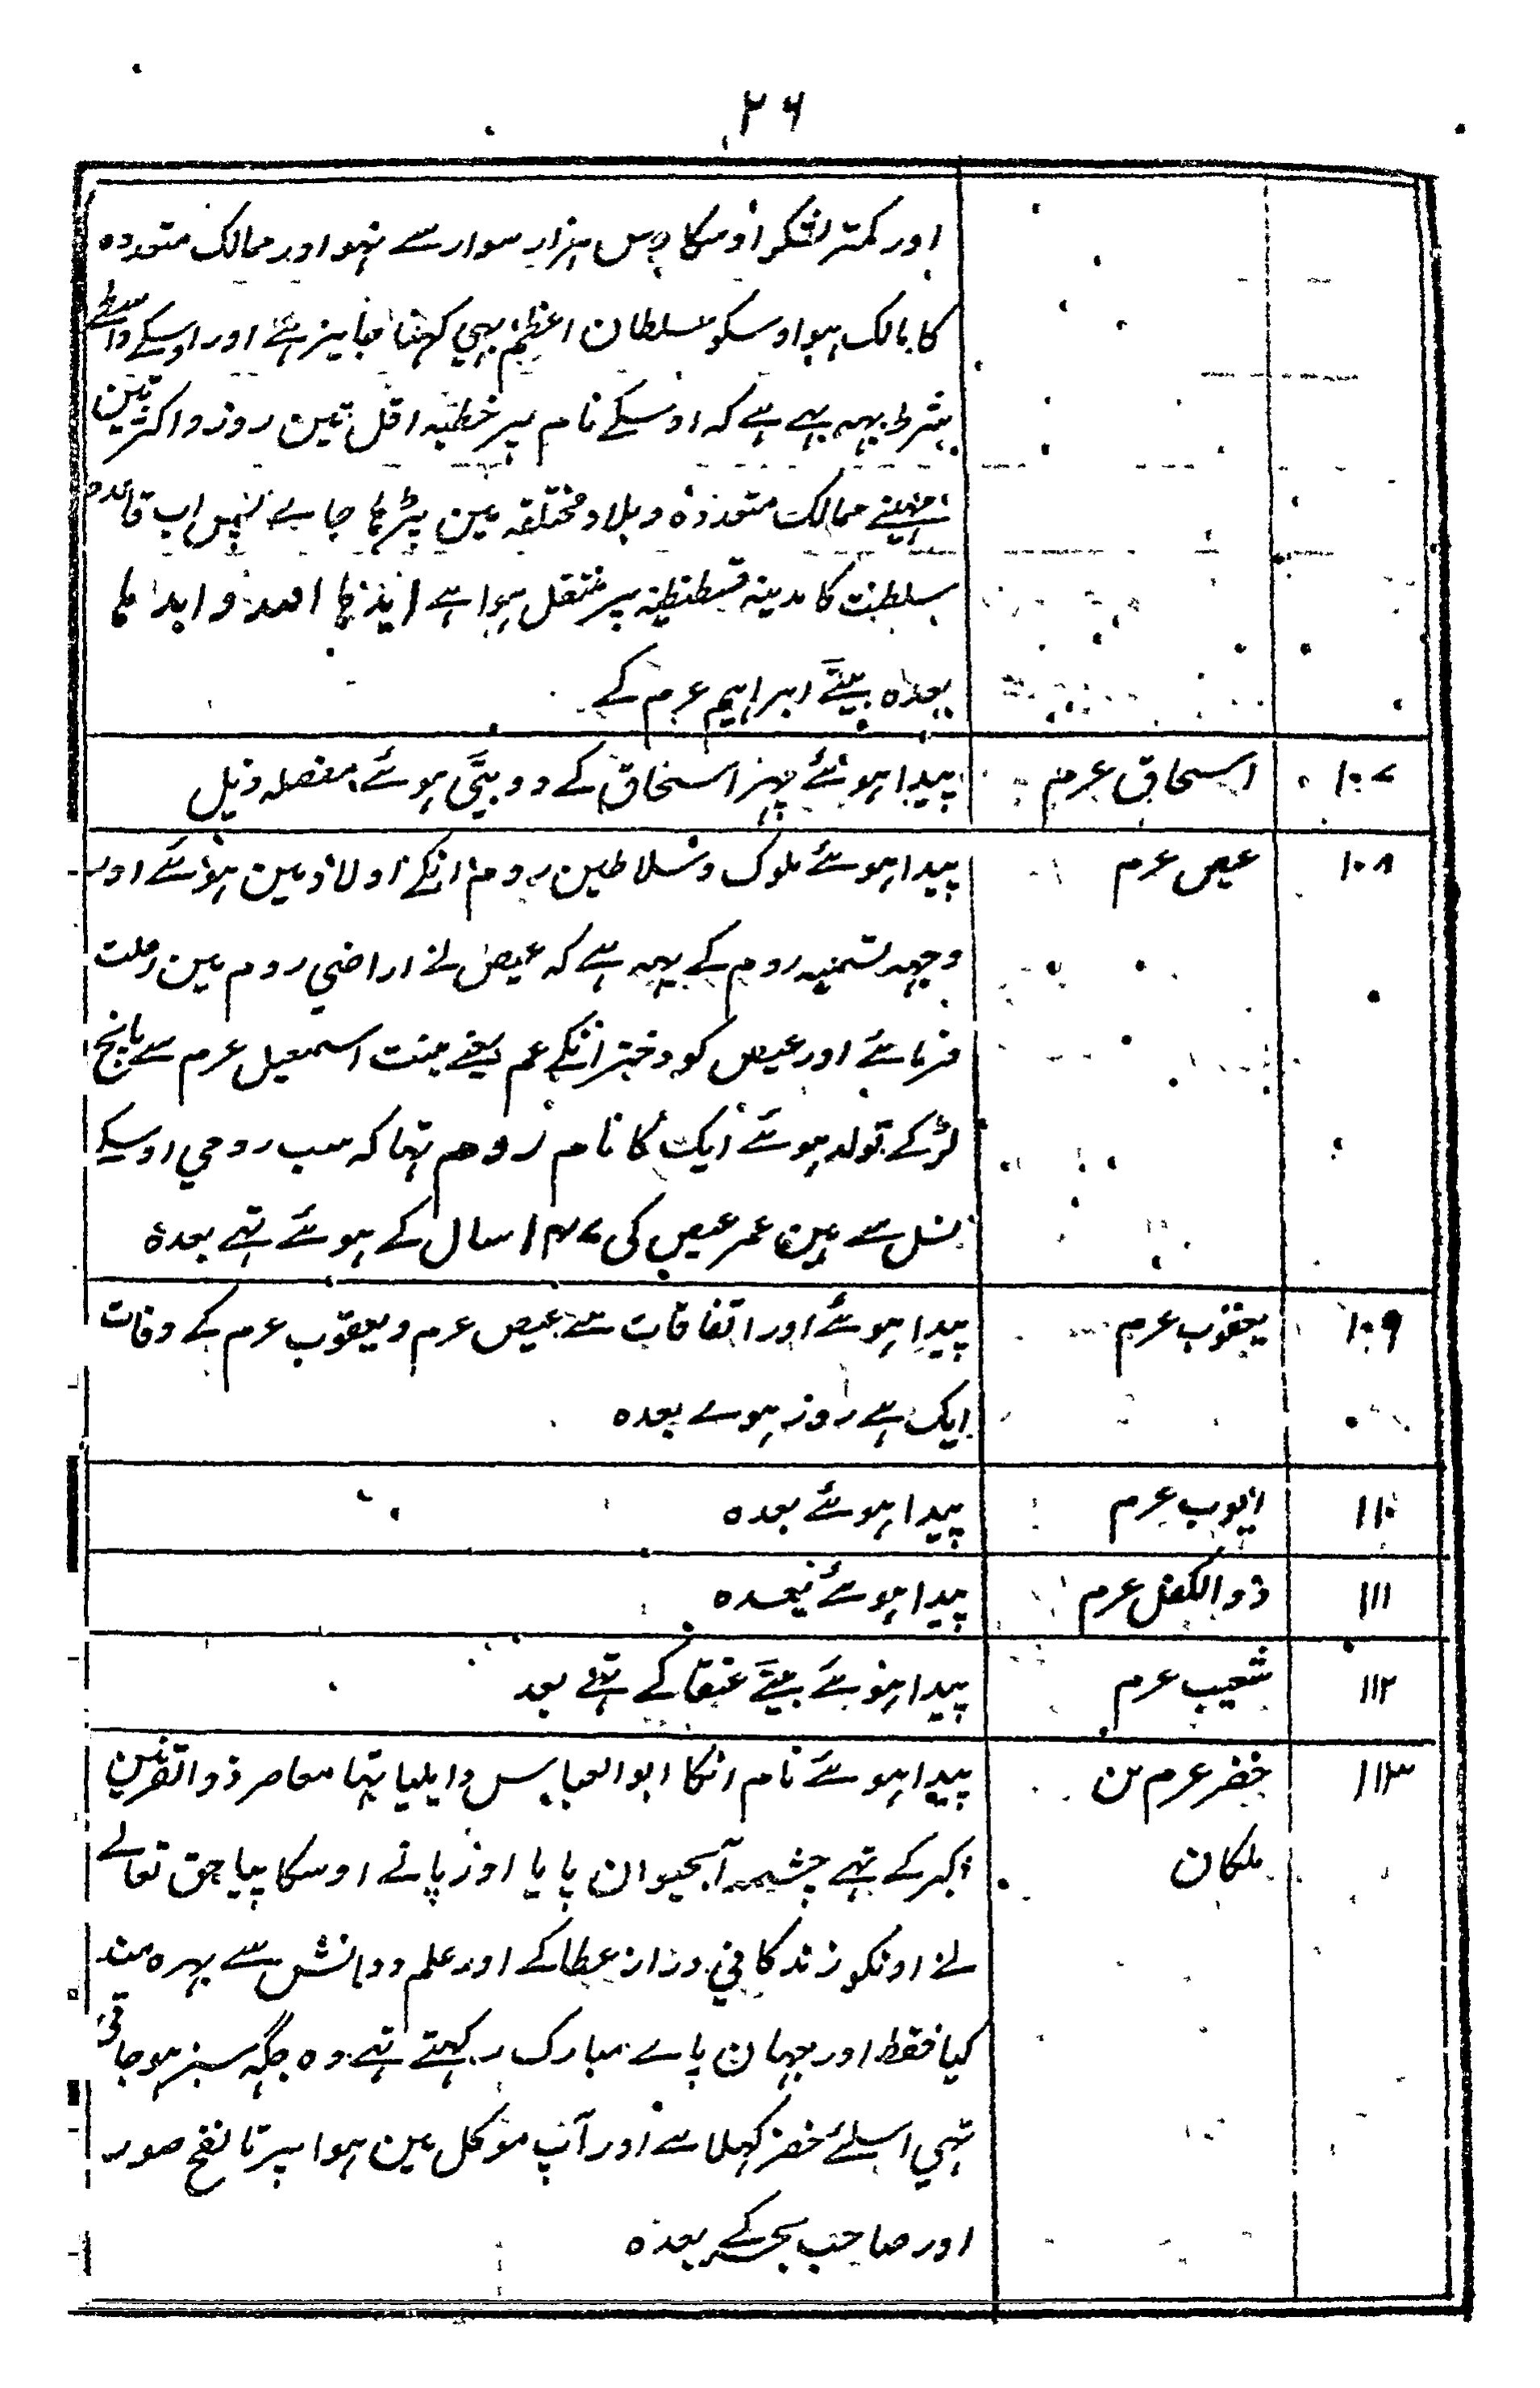 ۲۶
اور کمتر لشکر اوسکا دس ہزار سوار سے نہو اور ممالک متعددہ
کا مالک ہو اوسکو سلطان اعظم بہی کہنا جایز ہے اور اوسیکے واسطے
شرط یہہ ہے ہے کہ اوسیکے نام پر خطبہ اقل تین روز و اکثر تین
مہینے ممالک متعددہ و بلاد مختلفہ مین پڑہا جاے نہیں اب قاعدہ
سلطنت کا مدینہ قسطنطنیہ پر منتقل ہوا ہے ایدہا اللہ و ابدہا
بعدہ بیٹے ابراہیم عرم کے
۱۰۷ اسحاق عرم پیدا ہوئے پہر اسحاق کے دو بیٹے ہوئے مفصلہ ذیل
۱۰۸ عیص عرم پیدا ہوئے ملوک و سلاطین روم انکے اولاد مین ہوئے اور
وجہہ تسمیہ روم کے یہہ ہے کہ عیص نے اراضی روم مین رحلت
فرمائے اور عیص کو دختر انکے عم یعنے بنت اسمعیل عرم سے پانچ
لڑکے تولد ہوئے ایک کا نام روم تہا کہ سب رومی اوسیکے
نسل سے ہین عمر عیص کی ۱۴۷ سال کے ہوئے تہے بعدہ
۱۰۹ یعقوب عرم پیدا ہوئے اور اتفاقات سے عیص عرم و یعقوب عرم کے وفات
ایک ہے روز ہوے بعدہ
۱۱۰ ایوب عرم پیدا ہوئے بعدہ
۱۱۱ ذوالکفل عرم پیدا ہوئے بعدہ
۱۱۲ شعیب عرم پیدا ہوئے بیٹے عنقا کے تہے بعد
۱۱۳ خضر عرم بن پیدا ہوئے نام انکا ابوالعباس و ایلیا تہا معاصر ذوالقرنین
ملکان اکبر کے تہے چشمہ آبحیوان پایا اور پانے اوسکا پیا حق تعالے
نے اونکو زندگانی دراز عطا کے اور علم و دانش سے بہرہ مند
کیا فقط اور جہان پاے مبارک رکہتے تہے وہ جگہ سبز ہوجاتی
تہی اسلئے خضر کہلائے اور آپ موکل ہین ہوا پر تا نفخ صور
اور صاحب بحر کے بعدہ